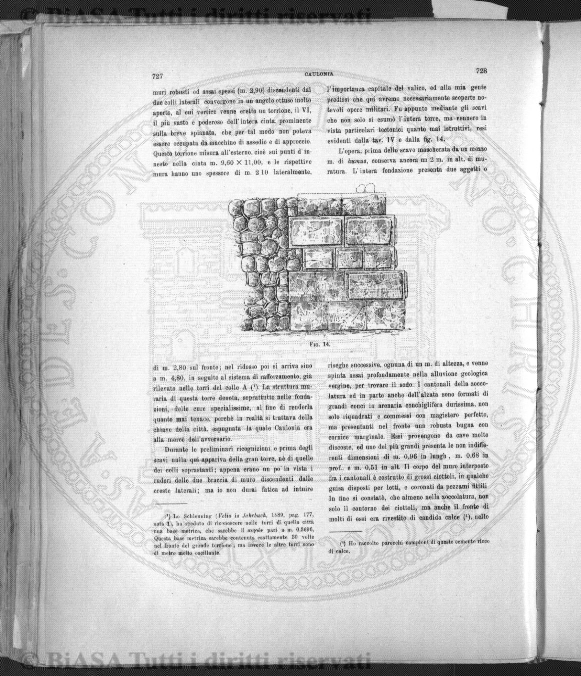 © BiASA Tutti i diritti riservati
727
CAULONIA
728
muri robusti ed assai spessi (m. 2,90) discendenti dai
due colli laterali convergono in un angolo ottuso molto
aperto, al cui vertice venne eretto un torrione, il VI,
il più vasto e poderoso dell'intera cinta, prominente
sulla breve spianata, che per tal modo non poteva
essere occupata da macchine di assedio e di approccio.
Questo torrione misura all'esterno, cioè sui punti d'in
nesto nella cinta m. 9,60 × 11,00, e le rispettive
mura hanno uno spessore di m. 2.10 lateralmente,
l'importanza capitale del valico, ed alla mia gente
predissi che qui avremo necessariamente scoperte no-
tevoli opere militari. Fu appunto mediante gli scavi
che non solo si esumò l'intera torre, ma vennero in
vista particolari tectonici quanto mai istruttivi, resi
evidenti dalla tav. IV e dalla fig. 14.
L'opera, prima dello scavo mascherata da un mezzo
m. di humus, conserva ancora m 2 m. in alt. di mu-
ratura. L'intera fondazione presenta due aggetti o
FIG. 14.
di m. 2,80 sul fronte; nel ridosso poi si arriva sino
a m. 4,80, in seguito al sistema di rafforzamento, già
rilevato nelle torri del colle A (¹). La struttura mu-
raria di questa torre doveva, soprattutto nelle fonda-
zioni, delle cure specialissime, al fine di renderla
quanto mai tenace, perchè in realtà si trattava della
chiave della città, espugnata la quale Caulonia era
alla mercè dell'avversario.
Durante le preliminari ricognizioni e prima degli
scavi nulla qui appariva della gran torre, nè di quelle
dei colli soprastanti; appena erano un po' in vista i
ruderi delle due braccia di muro discendenti dalle
creste laterali; ma io non durai fatica ad intuire
riseghe successive, ognuna di un m. di altezza, e venne
spinta assai profondamente nella alluvione geologica
vergine, per trovare il sodo. I cantonali della zocco-
latura ed in parte anche dell'alzata sono formati di
grandi conci in arenaria conchiglifera durissima, non
solo riquadrati e commessi con magistero perfetto,
ma presentanti nel fronte una robusta bugna con
cornice marginale. Essi provengono da cave molto
discoste, ed uno dei più grandi presenta le non indiffe-
renti dimensioni di m. 0,96 in lungh., m. 0.68 in
prof., e m. 0,51 in alt. Il corpo del muro interposto
fra i cantonali è costruito di grossi ciottoli, in qualche
guisa disposti per letti, e coronati da pezzami fittili.
In fine si constatò, che almeno nella zoccolatura, non
solo il contorno dei ciottoli, ma anche il fronte di
molti di essi era rivestito di candida calce (¹), sulle
(¹) Lo Schleuning (Velia in Jahrbuch, 1889, pag. 177,
nota 1), ha creduto di riconoscere nelle torri di quella città
una base metrica, che sarebbe il doppio pari a m 0.5696.
Questa base metrica sarebbe contenuta esattamente 50 volte
nel fronte del grande torrione; ma invece le altre torri sono
di metro molto oscillante.
(¹) Ho raccolto parecchi campioni di queste cemente ricco
di calce.
© BiASA Tutti i diritti riservati